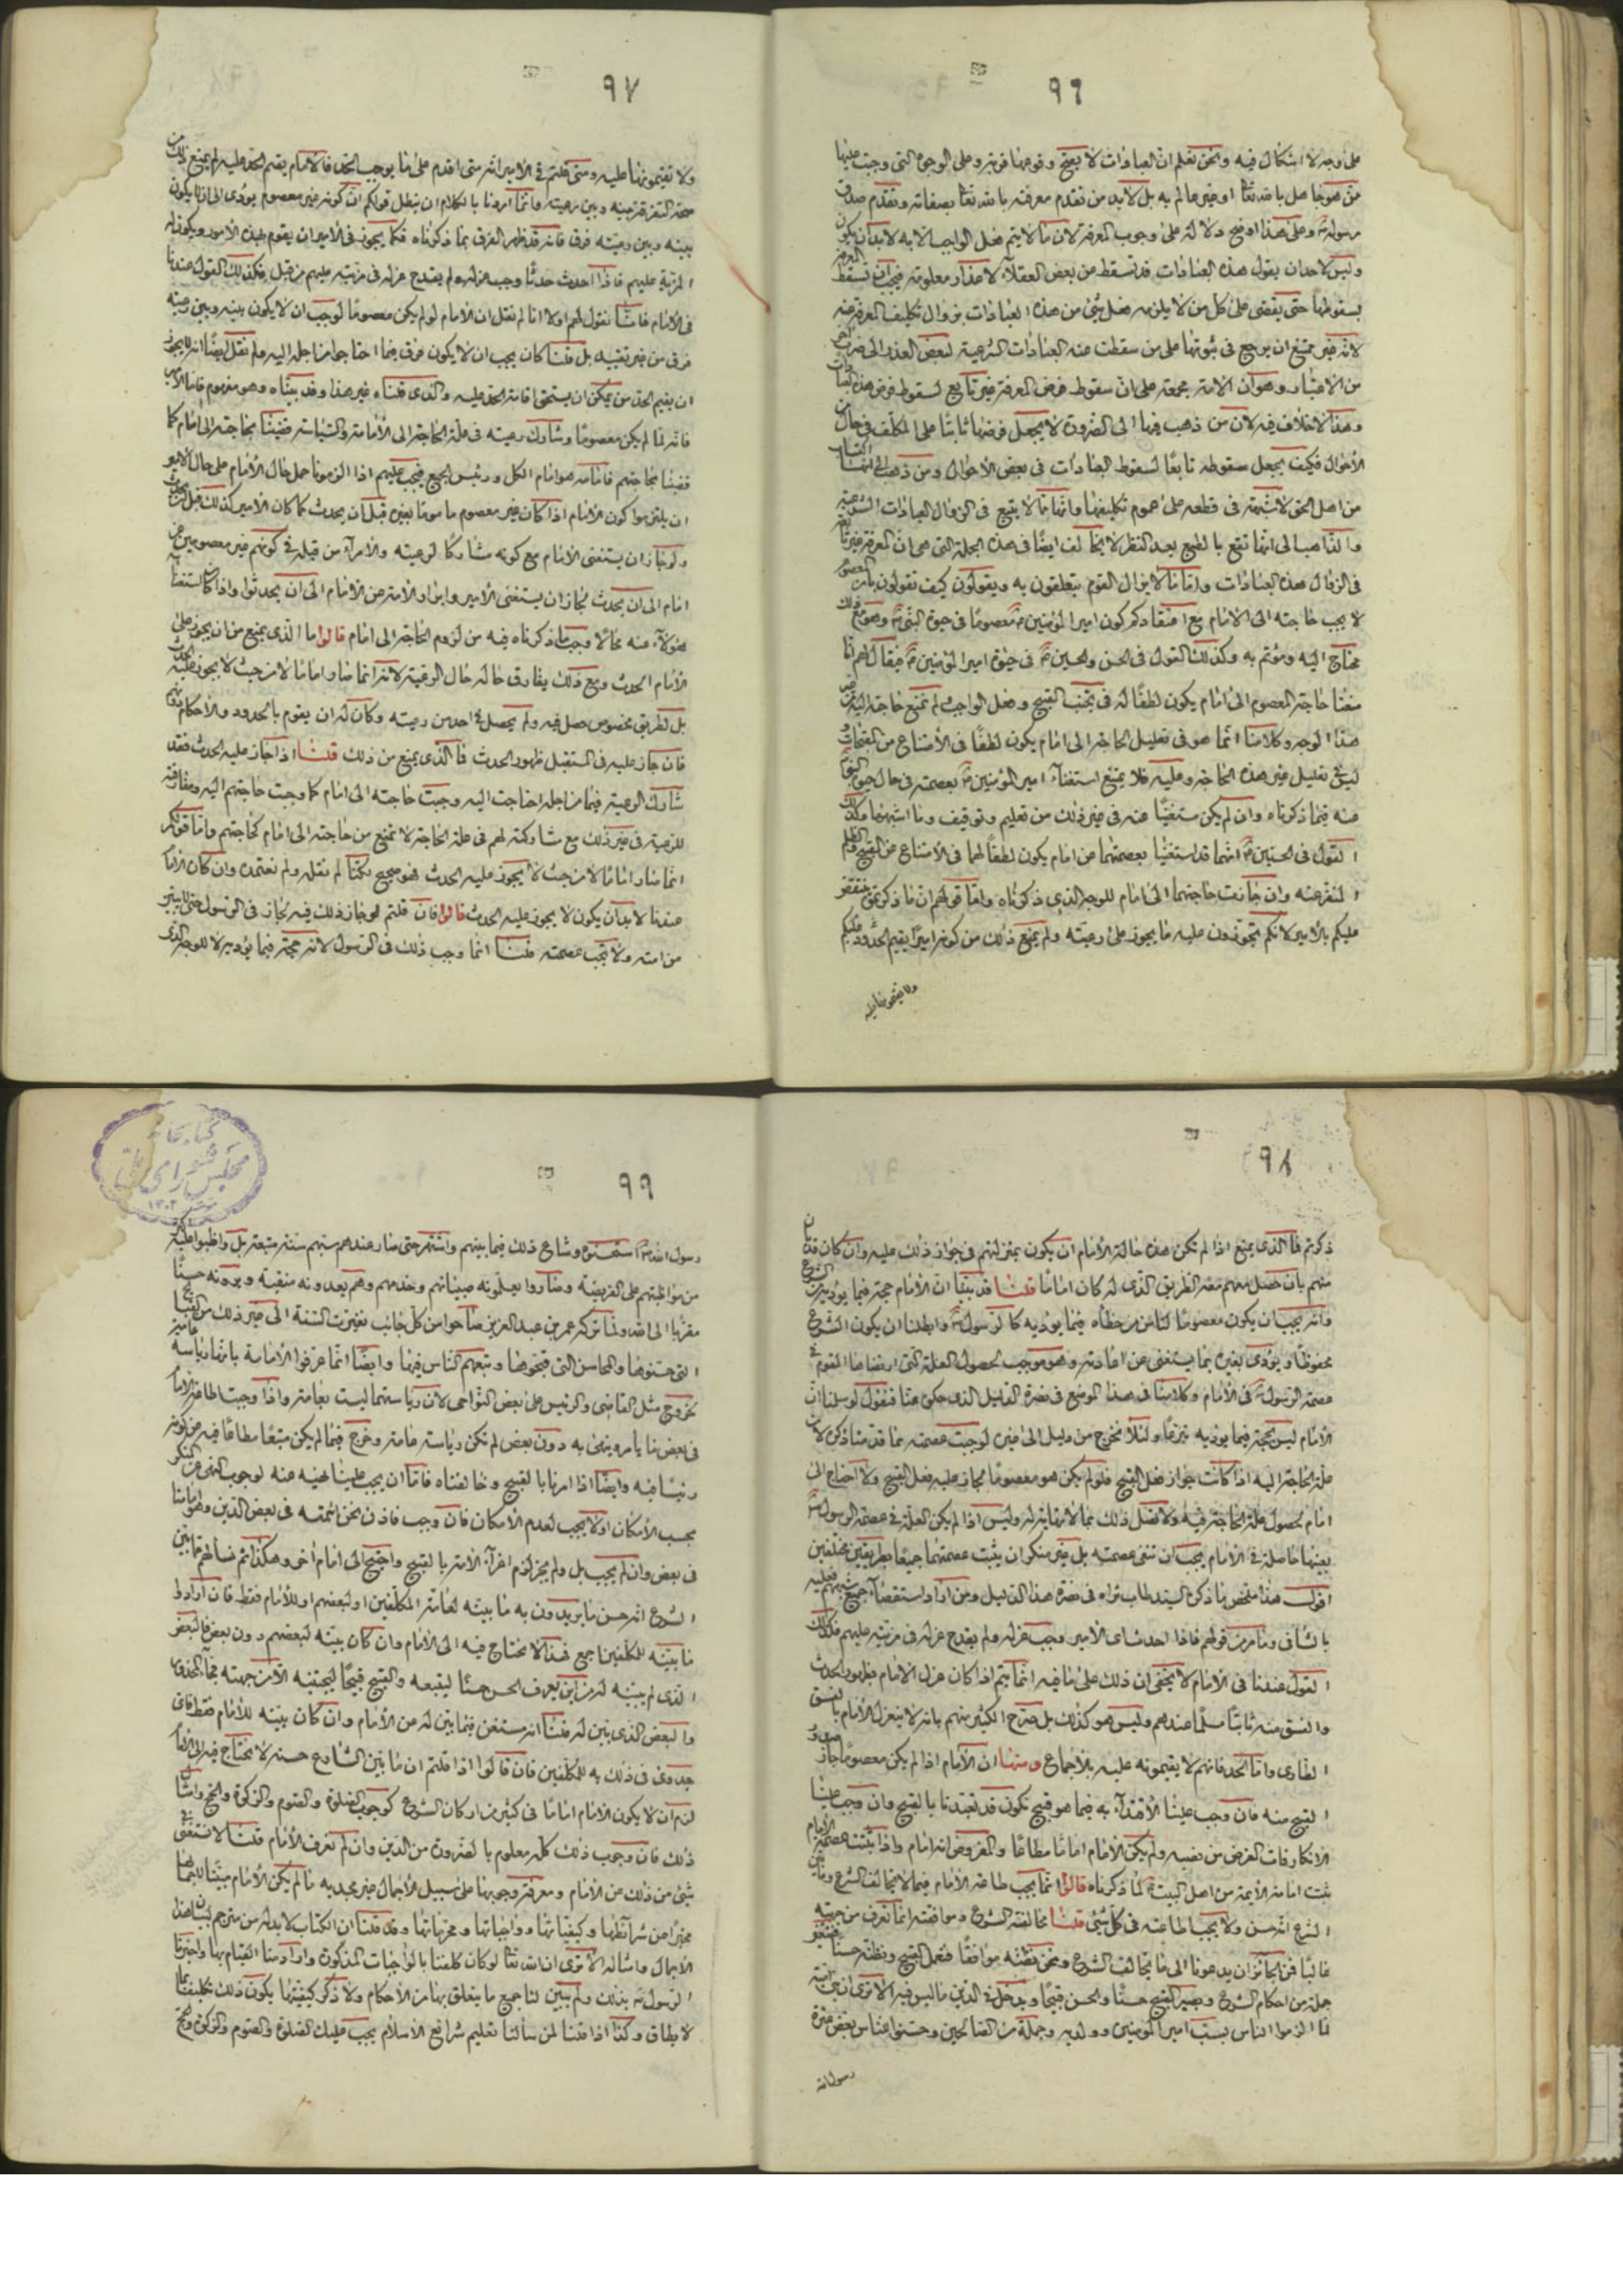 ٩٦
على وجه لا اشكال فيه ونحن نعلم ان العبادات لا يصح وقوعها قربة وعلى الوجوه التى وجبت عليها
من هو جاهل بالله تعا او غير عالم به بل لا بد من تقدم معرفته بالله تعا بصفاته وتقدم صدق
رسوله وعلى هذا اوضح دلالة على وجوب المعرفة لان ما لا يتم فعل الواجب الا به لا بد ان يكون
وليس لاحد ان يقول هذه العبادات قد تسقط عن بعض العقلاء لاعذار معلومة فيجب ان تسقط المعرفة
بسقوطها حتى يفضى على كل من لا يلزمه فعل شئ من هذه العبادات بزوال تكليف المعرفة عنه
لانه غير ممتنع ان يرجع فى ثبوتها على من سقطت عنه العبادات الشرعية لبعض العذر الى ضرب اخر
من الاعتبار وهو ان الامة مجمعة على ان سقوط فرض المعرفة غير تابع لسقوط فرض هذه العبادات
وهذا لا خلاف فيه لان من ذهب فيها الى الضرورة لا يجعل فرضها ثابتا على المكلف فى حال من
الأحوال فكيف يجعل سقوطه تابعا لسقوط العبادات فى بعض الأحوال ومن ذهب الى انها اكتساب
من اهل الحق لا شبهة فى قطعه على عموم تكليفها وانها مما لا يتبع فى الزوال العبادات الشرعية
والذاهب الى انها تقع بالطبع بعد النظر لا يخالف ايضا فى هذه الجملة التى هى ان المعرفة غير تابعة
فى الزوال هذه العبادات وامّا ما لا يزال القوم يتعلقون به ويقولون كيف تقولون بان المعصوم
لا يجب حاجته الى الامام مع اعتقادكم كون امير المؤمنين معصوما فى حيوة النبى وهو مع ذلك
محتاج اليه ومؤتم به وكذلك القول فى الحسن والحسين فى حيوة امير المؤمنين فيقال لهم انا
منعنا حاجة المعصوم الى امام يكون لطفا له فى تجنب القبيح وفعل الواجب لم نمنع حاجته اليه من غير
هذا الوجه وكلامنا انما هو فى تعليل الحاجة الى امام يكون لطفا فى الأمتناع من القبائح
ليس فى تعليل غير هذه الحاجة وعليه فلا يمتنع استغناء امير المؤمنين بعصمته فى حال حيوة النبى
عنه فيما ذكرناه وان لم يكن مستغنيا عنه فى غير ذلك من تعليم وتوقيف وما اشبههما وكذلك
القول فى الحسنين انهما قد استغنيا بعصمتهما عن امام يكون لطفا لهما فى الأمتناع من القبيح
وان جازت حاجتهما الى امام للوجه الذى ذكرناه وامّا قولهم ان ما ذكرتموه منتقض
عليكم بالأمير لانكم تجوزون عليه ما يجوز على رعيته ولم يمنع ذلك من كونه اميرا يقيم الحدود عليكم
ولا تقيمونها عليه
٩٧
ولا تقيمونها عليه ومتى قلتم فى الأمير انه متى اقدم على ما يوجب الحد فالامام يقيم الحد عليه لم يمنع ذلك من
صحة التفرقة بينه وبين رعيته وانما اردنا بالكلام ان يبطل قولكم ان كونه غير معصوم يؤدى الى ان لا يكون
بينه وبين رعيته فرق فانه قد ظهر الفرق بما ذكرناه فكما يجوز فى الأمير ان يقوم بهذه الأمور ويكون له
المزية عليهم فاذا احدث حدثا وجب عزله ولم يقدح عزله فى مزيته عليهم من قبل فكذلك القول عندنا
فى الأمام فانا نقول لهم اولا انا لم نقل ان الأمام لو لم يكن معصوما لوجب ان لا يكون بينه وبين رعيته
فرق من غير تقييد بل قلنا كان يجب ان لا يكون فرق فيما احتاجوا من اجله اليه ولم نقل ايضا انه لا يجوز
ان يقيم الحد من يمكن ان يستحق اقامة الحد عليه والذى قلناه غير هذا وقد بيناه وهو مفهوم فاما الأمير
فانه لما لم يكن معصوما وشارك رعيته فى علة الحاجة الى الأمامة والسياسة قضينا بحاجته الى امام كما
قضينا بحاجتهم فامامه هو امام الكل ورئيس الجميع فيجب عليهم اذا الزمونا حمل حال الأمام على حال الأمير
ان يلتزموا كون الأمام اذا كان غير معصوم ماموما بغيره قبل ان يحدث كما كان الأمير كذلك قبل ان يحدث
ولو جاز ان يستغنى الأمام مع كونه مشاركا لرعيته والأمراء من قبله فى كونهم غير معصومين عن
امام الى ان يحدث لجاز ان يستغنى الأمير والامة عن الأمام الى ان يحدثوا واذا كان استغناء
هؤلاء عنه محالا وجب ما ذكرناه فيه من لزوم الحاجة الى امام قالوا ما الذى يمنع من ان يجوز على
الأمام الحدث ومع ذلك يفارق حاله حال الرعية لانه انما صار اماما لا من حيث لا يجوز عليه الحدث
بل لطريق مخصوص حصل فيه ولم يحصل فى احد من رعيته وكان له ان يقوم بالحدود والأحكام
فان جاز عليه فى المستقبل ظهور الحدث فما الذى يمنع من ذلك قلنا اذا جاز عليه الحدث فقد
شارك الرعية فيما من اجله احتاجت اليه وجبت حاجته الى امام كما وجبت حاجتهم اليه ومفارقته
للرعية فى غير ذلك مع مشاركته لهم فى علة الحاجة لا تمنع من حاجته الى امام كحاجتهم وامّا قولكم
انما صار اماما لا من حيث لا يجوز عليه الحدث فهو صحيح لكنا لم نقله ولم نعتمده وان كان الأمام
عندنا لا بد ان يكون لا يجوز عليه الحدث قالوا فان قلتم لو جاز ذلك فيه لجاز فى الرسول حتى
من امته ولا يجب عصمته قلنا انما وجب ذلك فى الرسول لانه حجة فيما يؤديه لا للوجه الذى
٩٨
ذكرتم فما الذى يمنع اذا لم تكن هذه حالة الأمام ان يكون بمنزلتهم فى جواز ذلك عليه وان كان قد بان
منهم بان حصل معهم معه الطريق الذى له كان اماما قلنا قد بينا ان الأمام حجة فيما يؤديه من الشرع
وانه يجب ان يكون معصوما لنأمن من خطأه فيما يؤديه كالرسول وابطلنا ان يكون الشرع
محفوظا ويؤدى بغيره بما يستغنى عن اعادته وهو موجب لحصول العلة التى ارتضاها القوم فى
عصمة الرسول فى الأمام وكلامنا فى هذا الموضع فى نصرة الدليل الذى حكى عنا فنقول لو سلمنا ان
الأمام ليس بحجة فيما يؤديه تبرعا ولئلا نخرج من دليل الى غيره لوجبت عصمته بما قدمنا ذكره لان
علة الحاجة اليه اذا كانت جواز فعل القبيح فلو لم يكن هو معصوما لجاز عليه فعل القبيح ولاحتاج الى
امام لحصول علة الحاجة فيه ولاتصل ذلك بما لا نهاية له وليس اذا لم يكن العلة فى عصمة الرسول
بعينها حاصلة فى الأمام يجب ان تنفى عصمته بل غير منكر ان يثبت عصمتهما جميعا بطريقين مختلفين
اقول هذا ملخص ما ذكره السيد طاب ثراه فى نصرة هذا الدليل ومن اراد استقصاء جميع شبههم فعليه
بالشافى وما مر من قولهم فاذا احدث اى الأمير وجب عزله ولم يقدح عزله فى مزيته عليهم فكذلك
القول عندنا فى الأمام لا يخفى ان ذلك على ما فيه انما يتم اذا كان عزل الأمام بظهور الحدث
والفسق منه ثابتا مسلما عندهم وليس هو كذلك بل صرح الكثير منهم بانه لا ينعزل الأمام بالفسق
الطارى واما الحد فانهم لا يقيمونه عليه بالأجماع ومنها ان الأمام اذا لم يكن معصوما جاز صدور
القبيح منه فان وجب علينا الأقتداء به فيما هو قبيح نكون قد تعبدنا بالقبيح وان وجب علينا
الانكار فات الغرض من نصبه ولم يكن الأمام اماما مطاعا والمفروض انه امام واذا ثبتت عصمة الأمام
ثبت امامة الأيمة من اهل البيت لما ذكرناه قالوا انما يجب طاعة الأمام فيما لا يخالف الشرع وما بين
الشرع انه حسن ولا يجب طاعته فى كل شئ قلنا مخالفة الشرع وموافقته انما تعرف من جهته
غالبا فمن الجائز ان يدعونا الى ما يخالف الشرع ونحن نظنه موافقا فنعمل القبيح ونظنه حسنا فتتغير
جملة من احكام الشرع ويصير القبيح حسنا والحسن قبيحا ويدخل فى الدين ما ليس فيه الا ترى ان بنى امية
لما الزموا الناس بسب امير المؤمنين وولديه وجملة من الصالحين وحسنوا
رسول الله
٩٩
رسول الله استحسنوه وشاع ذلك فيما بينهم واشتهر حتى صار عندهم سنة متبعة بل واظبوا عليه اكثر
من مواظبتهم على الفريضة وصاروا يعلمونه صبيانهم وخدمهم وهم يعدونه منقبة ويرونه حسنا
مقربا الى الله ولما تركه عمر بن عبد العزيز صاحوا من كل جانب تغيرت السنة الى غير ذلك من القبائح
التى حسنوها والمحاسن التى قبحوها وتبعهم الناس فيها وايضا انما عرفوا الأمامة بانها رياسة عامة
يخرج مثل القاضى والرئيس على بعض النواحى لان رياستهما ليست بعامة واذا وجبت اطاعة الأمام
فى بعض ما يأمر وينهى به دون بعض لم تكن رياسته عامة وخرج فيما لم يكن متبعا مطاعا فيه عن كونه
رئيسا فيه وايضا اذا امرنا بالقبيح وخالفناه فاما ان يجب علينا نهيه عنه لوجوب النهى عن المنكر
بحسب الأمكان او لا يجب لعدم الأمكان فان وجب فاذن نحن ائمته فى بعض الدين وهو امامنا
فى بعض وان لم يجب بل ولم يجز لزم اغراء الأمة بالقبيح واحتيج الى امام اخر وهكذا ثم نسألهم عما بين
الشرع انه حسن ما يريدون به ما بينه لعامة المكلفين او لبعضهم او للأمام فقط فان ارادوا
ما بينه للمكلفين اجمع فهذا لا يحتاج فيه الى الأمام وان كان بينه لبعضهم دون بعض فالبعض
الذى لم يبينه له من اين يعرف الحسن حسنا ليتبعه والقبيح قبيحا ليجتنبه الا من جهته
والبعض الذى بين له قلنا انه مستغن فيما بين له عن الأمام وان كان بينه للأمام فقط فاى
جدوى فى ذلك به للمكلفين فان قالوا اذا قلتم ان ما بين الشارع حسنه لا يحتاج فيه الى الأمام
لزم ان لا يكون الأمام اماما فى كثير من اركان الشرع كوجوب الصلوة والصوم والزكوة والحج وامثال
ذلك فان وجوب ذلك كله معلوم بالضرورة من الدين وان لم نعرف الأمام قلنا لا نستغنى فى
شئ من ذلك عن الأمام ومعرفة وجوبها على سبيل الأجمال غير مجديه ما لم يكن الأمام مبينا للجمل
مخبرا عن شرائطها وكيفياتها وواجباتها ومحرماتها وقد قلنا ان الكتاب لا بد له من مترجم لبيان هذا
الأجمال وامثاله الا ترى ان الله تعا لو كان كلفنا بالواجبات المذكورة واراد منا القيام بها واخبرنا
الرسول بذلك ولم يبين لنا جميع ما يتعلق بها من الأحكام ولا ذكر كيفيتها يكون ذلك تكليفا بما
لا يطاق وكذا اذا قلنا لمن سألنا تعليم شرائع الأسلام يجب عليك الصلوة والصوم والزكوة والحج
كتابخانه
مجلس شوراى ملى